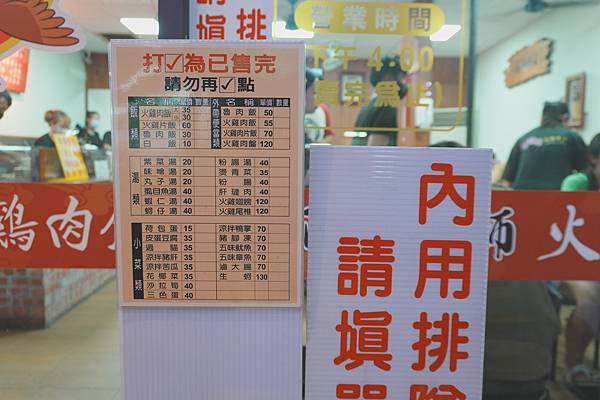 請填排隊
營業時間
下午 4:00
賣完為止
打☑為已售完
請勿再☑點
飯類 名稱 單價 數量 外帶便當類 名稱 單價 數量
火雞肉飯 35 魯肉飯 50
火雞肉飯 55
火雞片飯 60 火雞肉片飯 70
魯肉飯 30 火雞肉盤 120
白飯 10
湯類
紫菜湯 20 粉腸湯 40
味噌湯 20 燙青菜 35
丸子湯 20 粉腸 40
虱目魚湯 40 肝璉肉 40
蝦仁湯 40 火雞翅膀 120
蚵仔湯 40 火雞尾椎 120
小菜類
荷包蛋 15 涼拌鴨掌 70
皮蛋豆腐 35 豬腳凍 70
過貓 35 五味魷魚 70
涼拌豬肝 35 五味章魚 70
涼拌苦瓜 35 滷大腸 70
花椰菜 35 生蚵 130
沙拉筍 40
三色蛋 40
雞肉
師 火
內用排隊
請填單